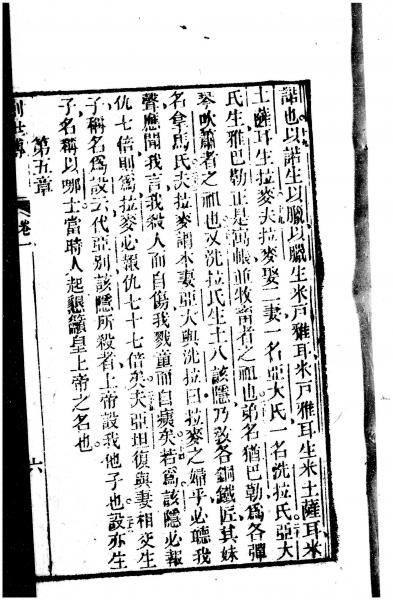 諾也以諾生以臘以臘生米戸雅耳米戸雅耳生米土薩耳米
土薩耳生拉麥夫拉麥娶二妻一名亞大氏一名洗拉氏亞大
氏生雅巴勒正是萬帳並牧畜者之祖也弟名猶巴勒爲各彈
琴吹簫者之祖也又洗拉氏生土八該隱乃敎各銅鐵匠其妹
名拿馬氏夫拉麥謂本妻亞大與洗拉曰拉麥之婦乎必聽我
聲應聞我言我殺人而自傷我戮童而自痍矣若爲該隱必報
仇七倍則爲拉麥必報仇七十七倍矣夫亞坦復與妻相交生
子稱名爲設云代亞別該隱所殺者上帝設我他子也設亦生
子名稱以哪士當時人起懇籲皇上帝之名也
第五章
創世傳 卷一 六